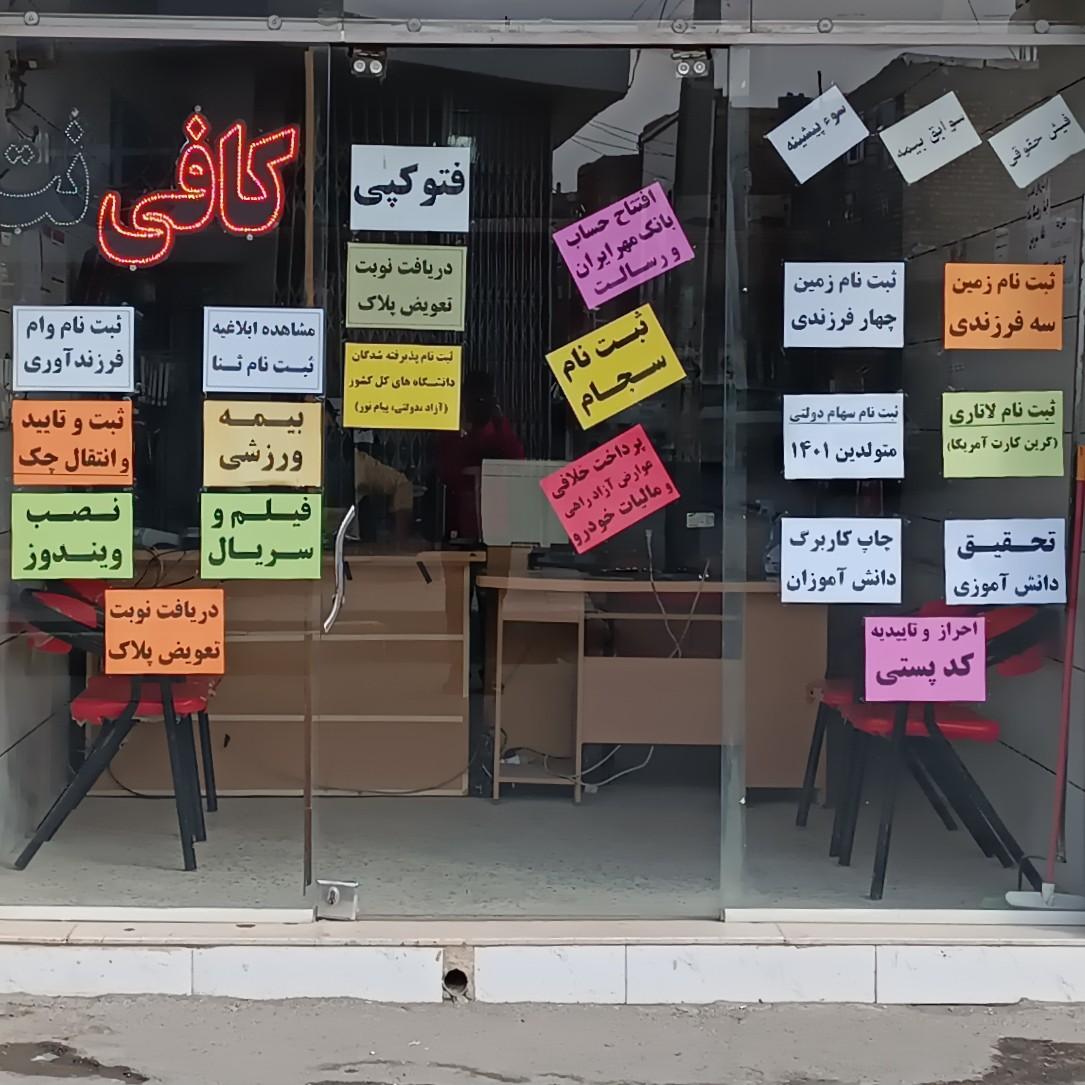 کافی نت
سوء پیشینه
سوابق بیمه
فیش حقوقی
فتوکپی
دریافت نوبت
تعویض پلاک
ثبت نام پذیرفته شدگان
دانشگاه های کل کشور
(آزاد،دولتی، پیام نور)
افتتاح حساب
بانک مهر ایران
و رسالت
ثبت نام
سجام
پرداخت خلافی
عوارض آزاد راهی
و مالیات خودرو
ثبت نام زمین
سه فرزندی
ثبت نام زمین
چهار فرزندی
ثبت نام لاتاری
(گرین کارت آمریکا)
ثبت نام سهام دولتی
متولدین ۱۴۰۱
تحقیق
دانش آموزی
چاپ کاربرگ
دانش آموزان
احراز و تاییدیه
کد پستی
مشاهده ابلاغیه
ثبت نام ثنا
ثبت نام وام
فرزندآوری
بیمه
ورزشی
ثبت و تایید
و انتقال چک
فیلم و
سریال
نصب
ویندوز
دریافت نوبت
تعویض پلاک